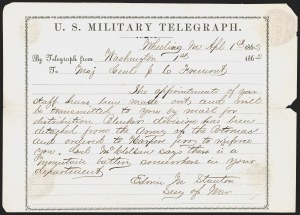 U. S. MILITARY TELEGRAPH.
Wheeling Va Apl 1st 1862
By Telegraph from Washington 1st 1862
To Maj Genl J. C. Fremont
The appointments of your
staff have been made out and will
be transmitted to you by mail for
distribution Blenkers division has been
detached from the Army of the Potomac
and ordered to Harpers ferry to reinforce
you. Genl McClellan says there is a
mountain battery somewhere in your
department
Edwin M Stanton
Secy of War